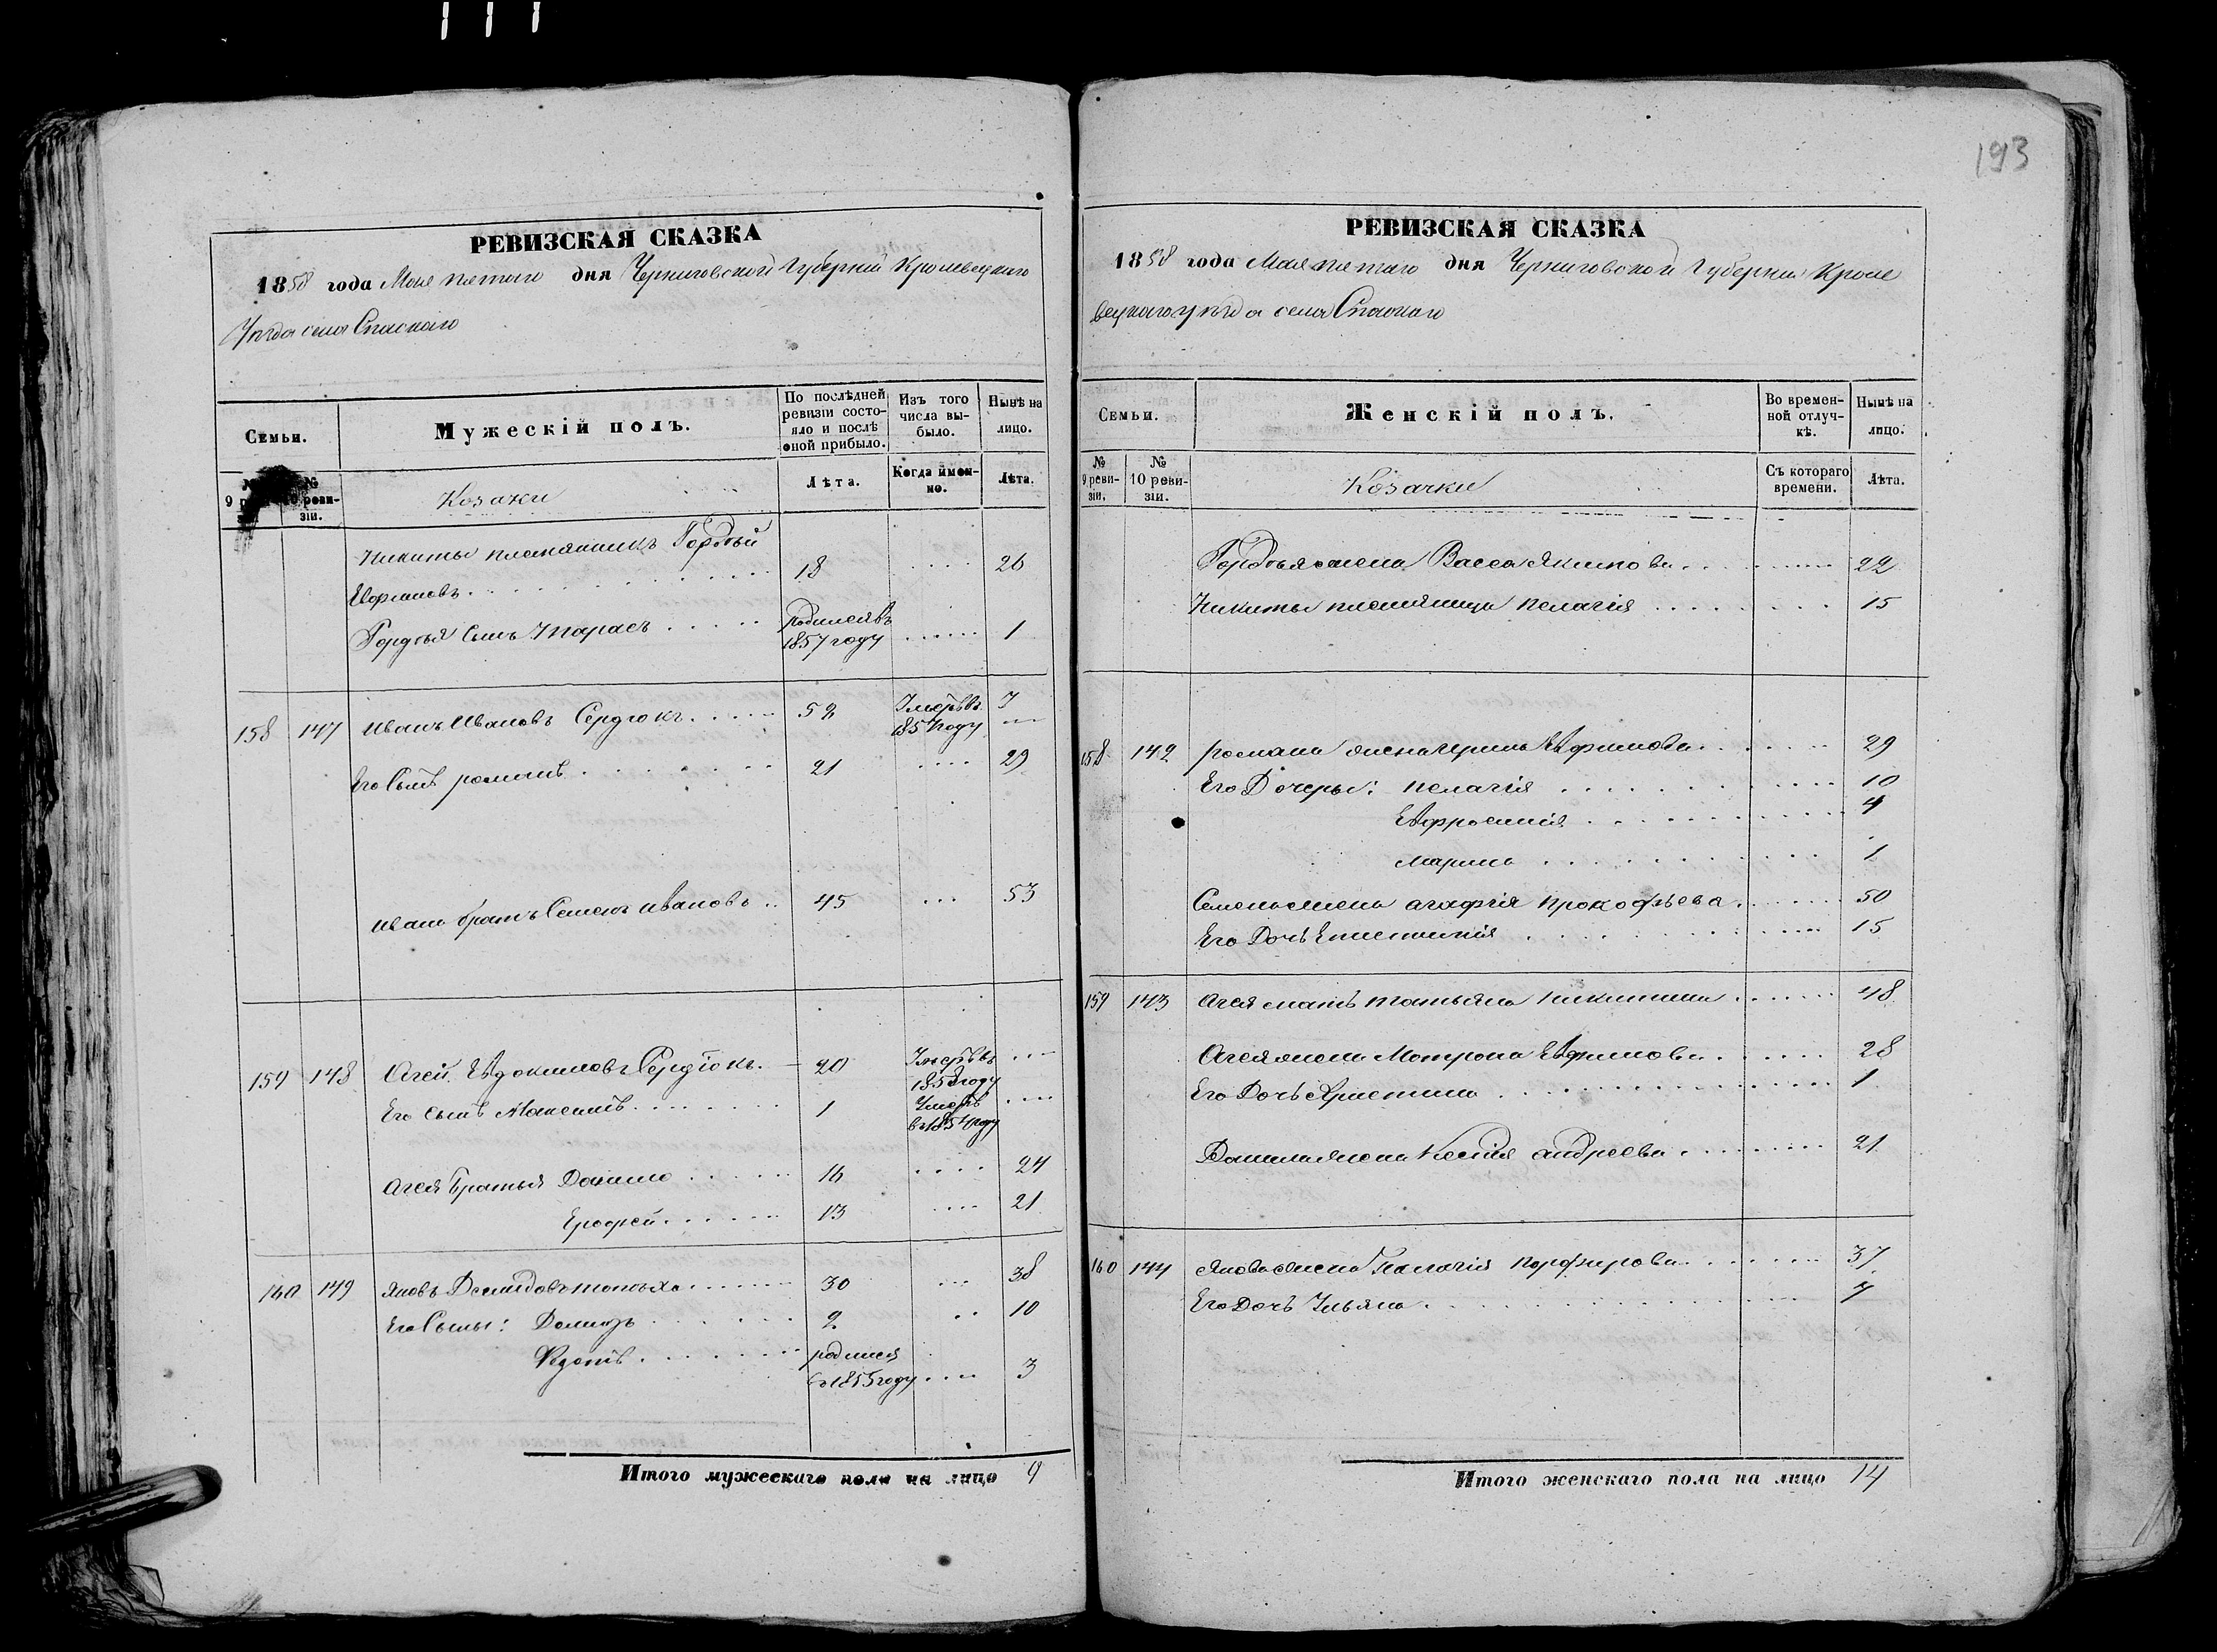 193
РЕВИЗСКАЯ СКАЗКА
1858 года Мая пятаго дня Черниговской Губерніи Кролевецкаго
Уѣзда села Спаскаго
Семьи.
Мужескій полъ.
По послѣдней ревизіи состояло и послѣ оной прибыло.
Изъ того числа выбыло.
Нынѣ на лицо.
№ 9 ре
№ 10 ревизіи.
Козаки
Лѣта.
Когда именно.
Лѣта.
Никиты племянникъ Гордѣй
18 26
Гордѣя сынъ Тарасъ родился въ 1857 году 1
158 147 Иванъ Ивановъ Сердюкъ 52 Умеръ въ
Его сынъ Романъ 21 29
Ивана братъ Семенъ Ивановъ 45 53
159 148 Агей Евдокимовъ Сердюкъ 20 Умеръ въ 1858 году
Его сынъ Максимъ 1 Умеръ въ 1854 году
Агея братья Данило 16 24
Ерофей 13 21
160 149 Яковъ Демидовъ 30 38
Его сыны: Демидъ 2 10
Федотъ родился въ 1855 году 3
Итого мужескаго пола на лицо 9
РЕВИЗСКАЯ СКАЗКА
1858 года Мая пятаго дня Черниговской Губерніи Кроле
вецкаго уѣзда села Спаскаго
Семьи.
Женскій полъ.
Во временной отлучкѣ.
Нынѣ на лицо.
№ 9 ревизіи.
№ 10 ревизіи.
Козачки
Съ котораго времени.
Лѣта.
Гордѣя жена Васса Якимова 22
Никиты племянница Пелагія 15
158 142 Романа жена Ирина Евфимова 29
Его Дочеры: Пелагія 10
Евфросинія 4
Марина 1
Семена жена Агафія Прокофьева 50
Его Дочь 15
159 143 Агея мать Татьяна Никитина 48
Агея жена Матрона Евфимова 28
Его Дочь Христина 1
Данила жена Ксенія Андреева 21
160 144 Якова жена Пелагія Порфирова 37
Его Дочь Ульяна 7
Итого женскаго пола на лицо 14